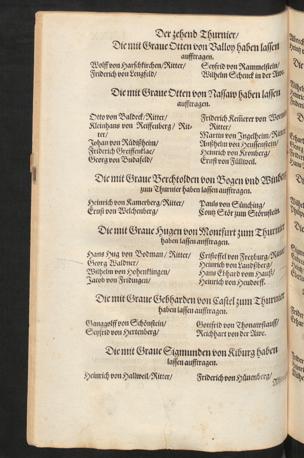 Der zehend Thurnier/
Die mit Graue Otten von Balloy haben lassen
aufftragen.
Wolff von Harschkirchen/Ritter/ Seyfrid von Rammelstein/
Friderich von Lengfeld/ Wilhelm Schenck in der Awe.
Die mit Graue Otten von Nassaw haben lassen
aufftragen.
Otto von Baldeck/Ritter/ Friderich Kesserer von
Kleinhans von Reiffenberg/ Rit- Ritter/
ter/ Martin von Ingelheim/
Johan von Rüdißheim/ Anßhelm von Heussenstein/
Friderich Greiffenklae/ Heinrich von Kronberg/
Georg von Budafeld/ Ernst von Fülliweil.
Die mit Graue Berchtolden von Bogen vnd
zum Thurnier haben lassen aufftragen.
Heinrich von Ramerberg/Ritter/ Pauls von Sünching/
Ernst von Weichenberg/
Die mit Graue Hugen von Montfurt zum Thurnier
haben lassen aufftragen.
Hans Hug von Bodman/ Ritter/ Cristoffel von Freyburg/
Georg Waldner/ Heinrich von Landßberg/
Wilhelm von Hohenklingen/ Hans Ebhard von
Jacob von Fridingen/ Heinrich von Heudorff.
Die mit Graue Gebharden von Castel zum Thurnier
haben lassen aufftragen.
Ganggolff von Schönstein/ Gottfrid von
Seyfrid von Hertenberg/ Reichhart von der Awe.
Die mit Graue Sigmunden von Kiburg haben
lassen aufftragen.
Heinrich von Hallweil/Ritter/ Friderich von Hünenberg/